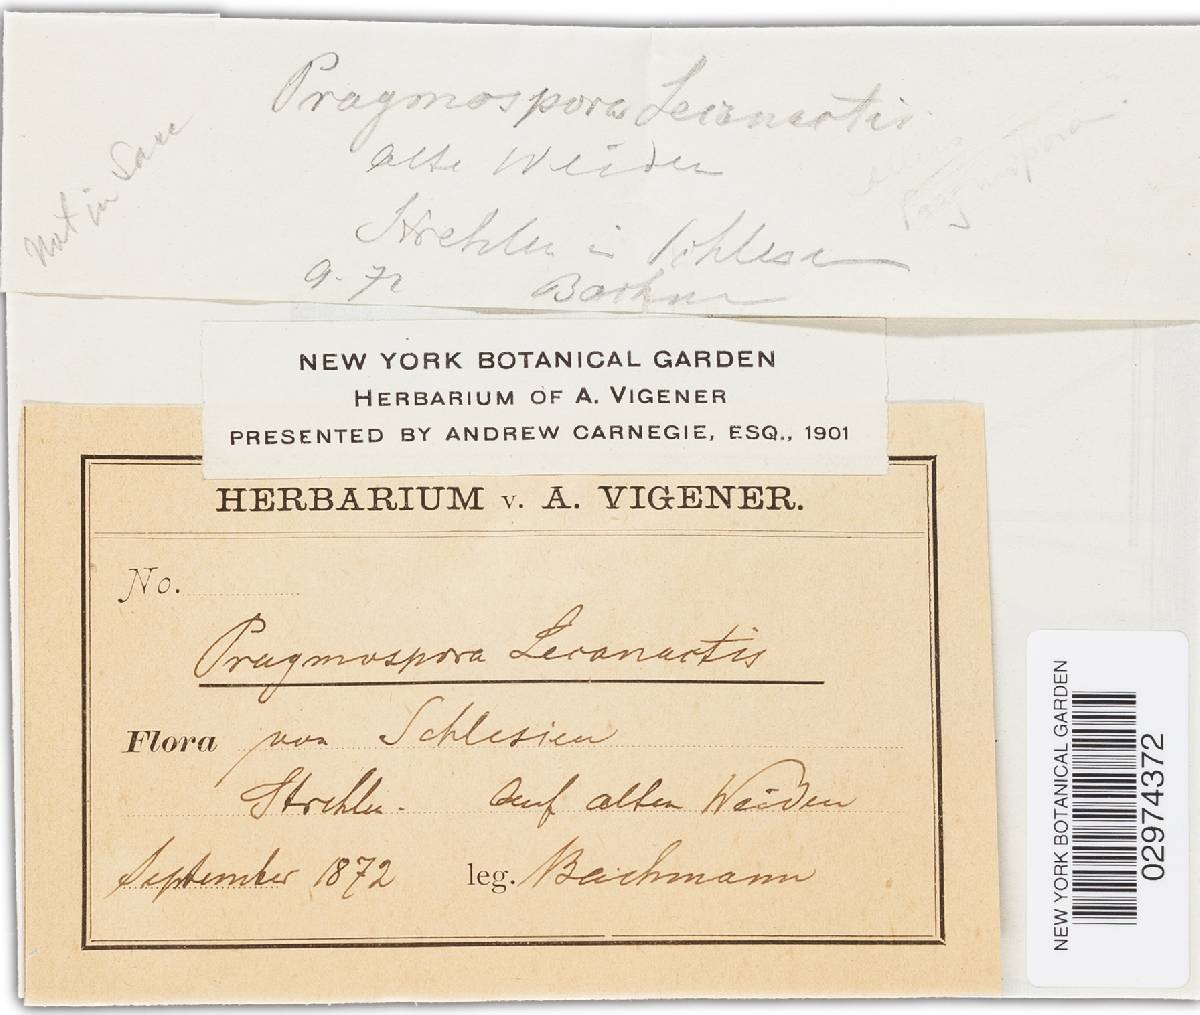 Pragmospora Lecanactis
alte Weiden
Strehlen in Schlesien
9. 72 Bachm
Not in Sacc
Pragmospora
NEW YORK BOTANICAL GARDEN
HERBARIUM OF A. VIGENER
PRESENTED BY ANDREW CARNEGIE, ESQ., 1901
HERBARIUM v. A. VIGENER.
No.
Pragmospora Lecanactis
Flora von Schlesien
Strehlen. Auf alten Weiden
September 1872 leg. Bachmann
NEW YORK BOTANICAL GARDEN
02974372